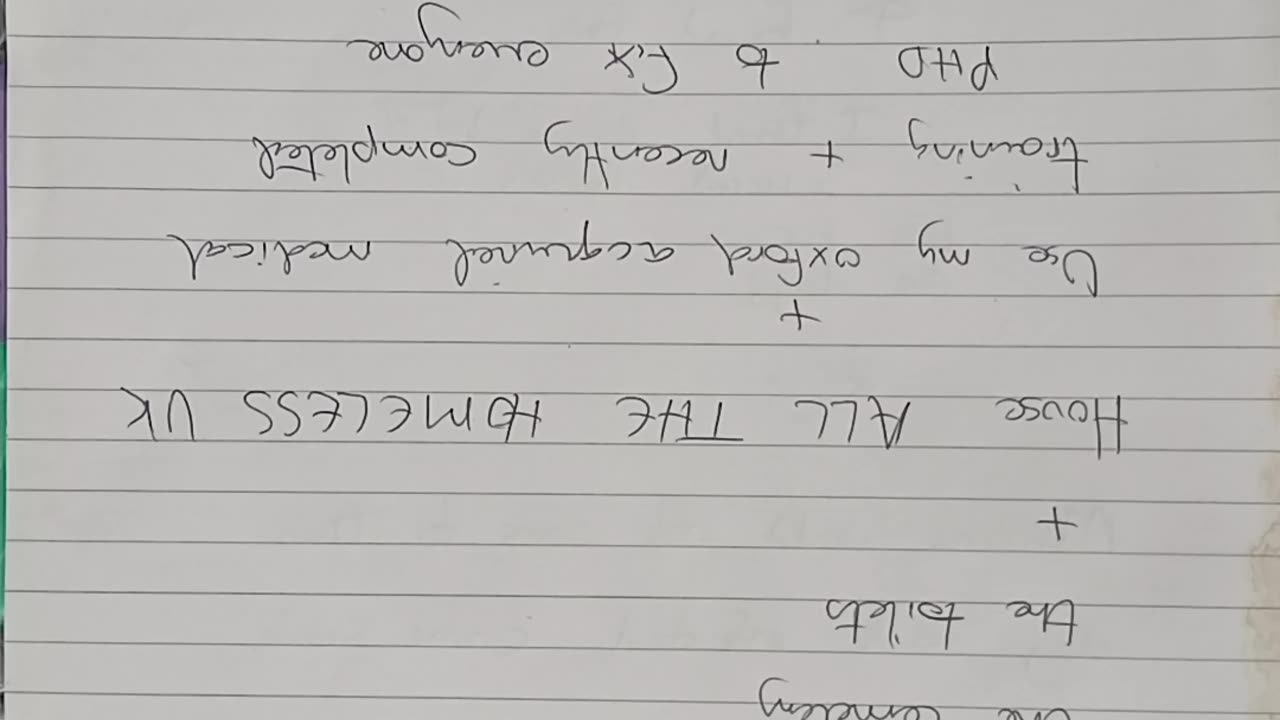 the cemetery
the toilets
+
House ALL THE HOMELESS UK
+
Use my oxford acquired medical
training + recently completed
PHD to Fix everyone